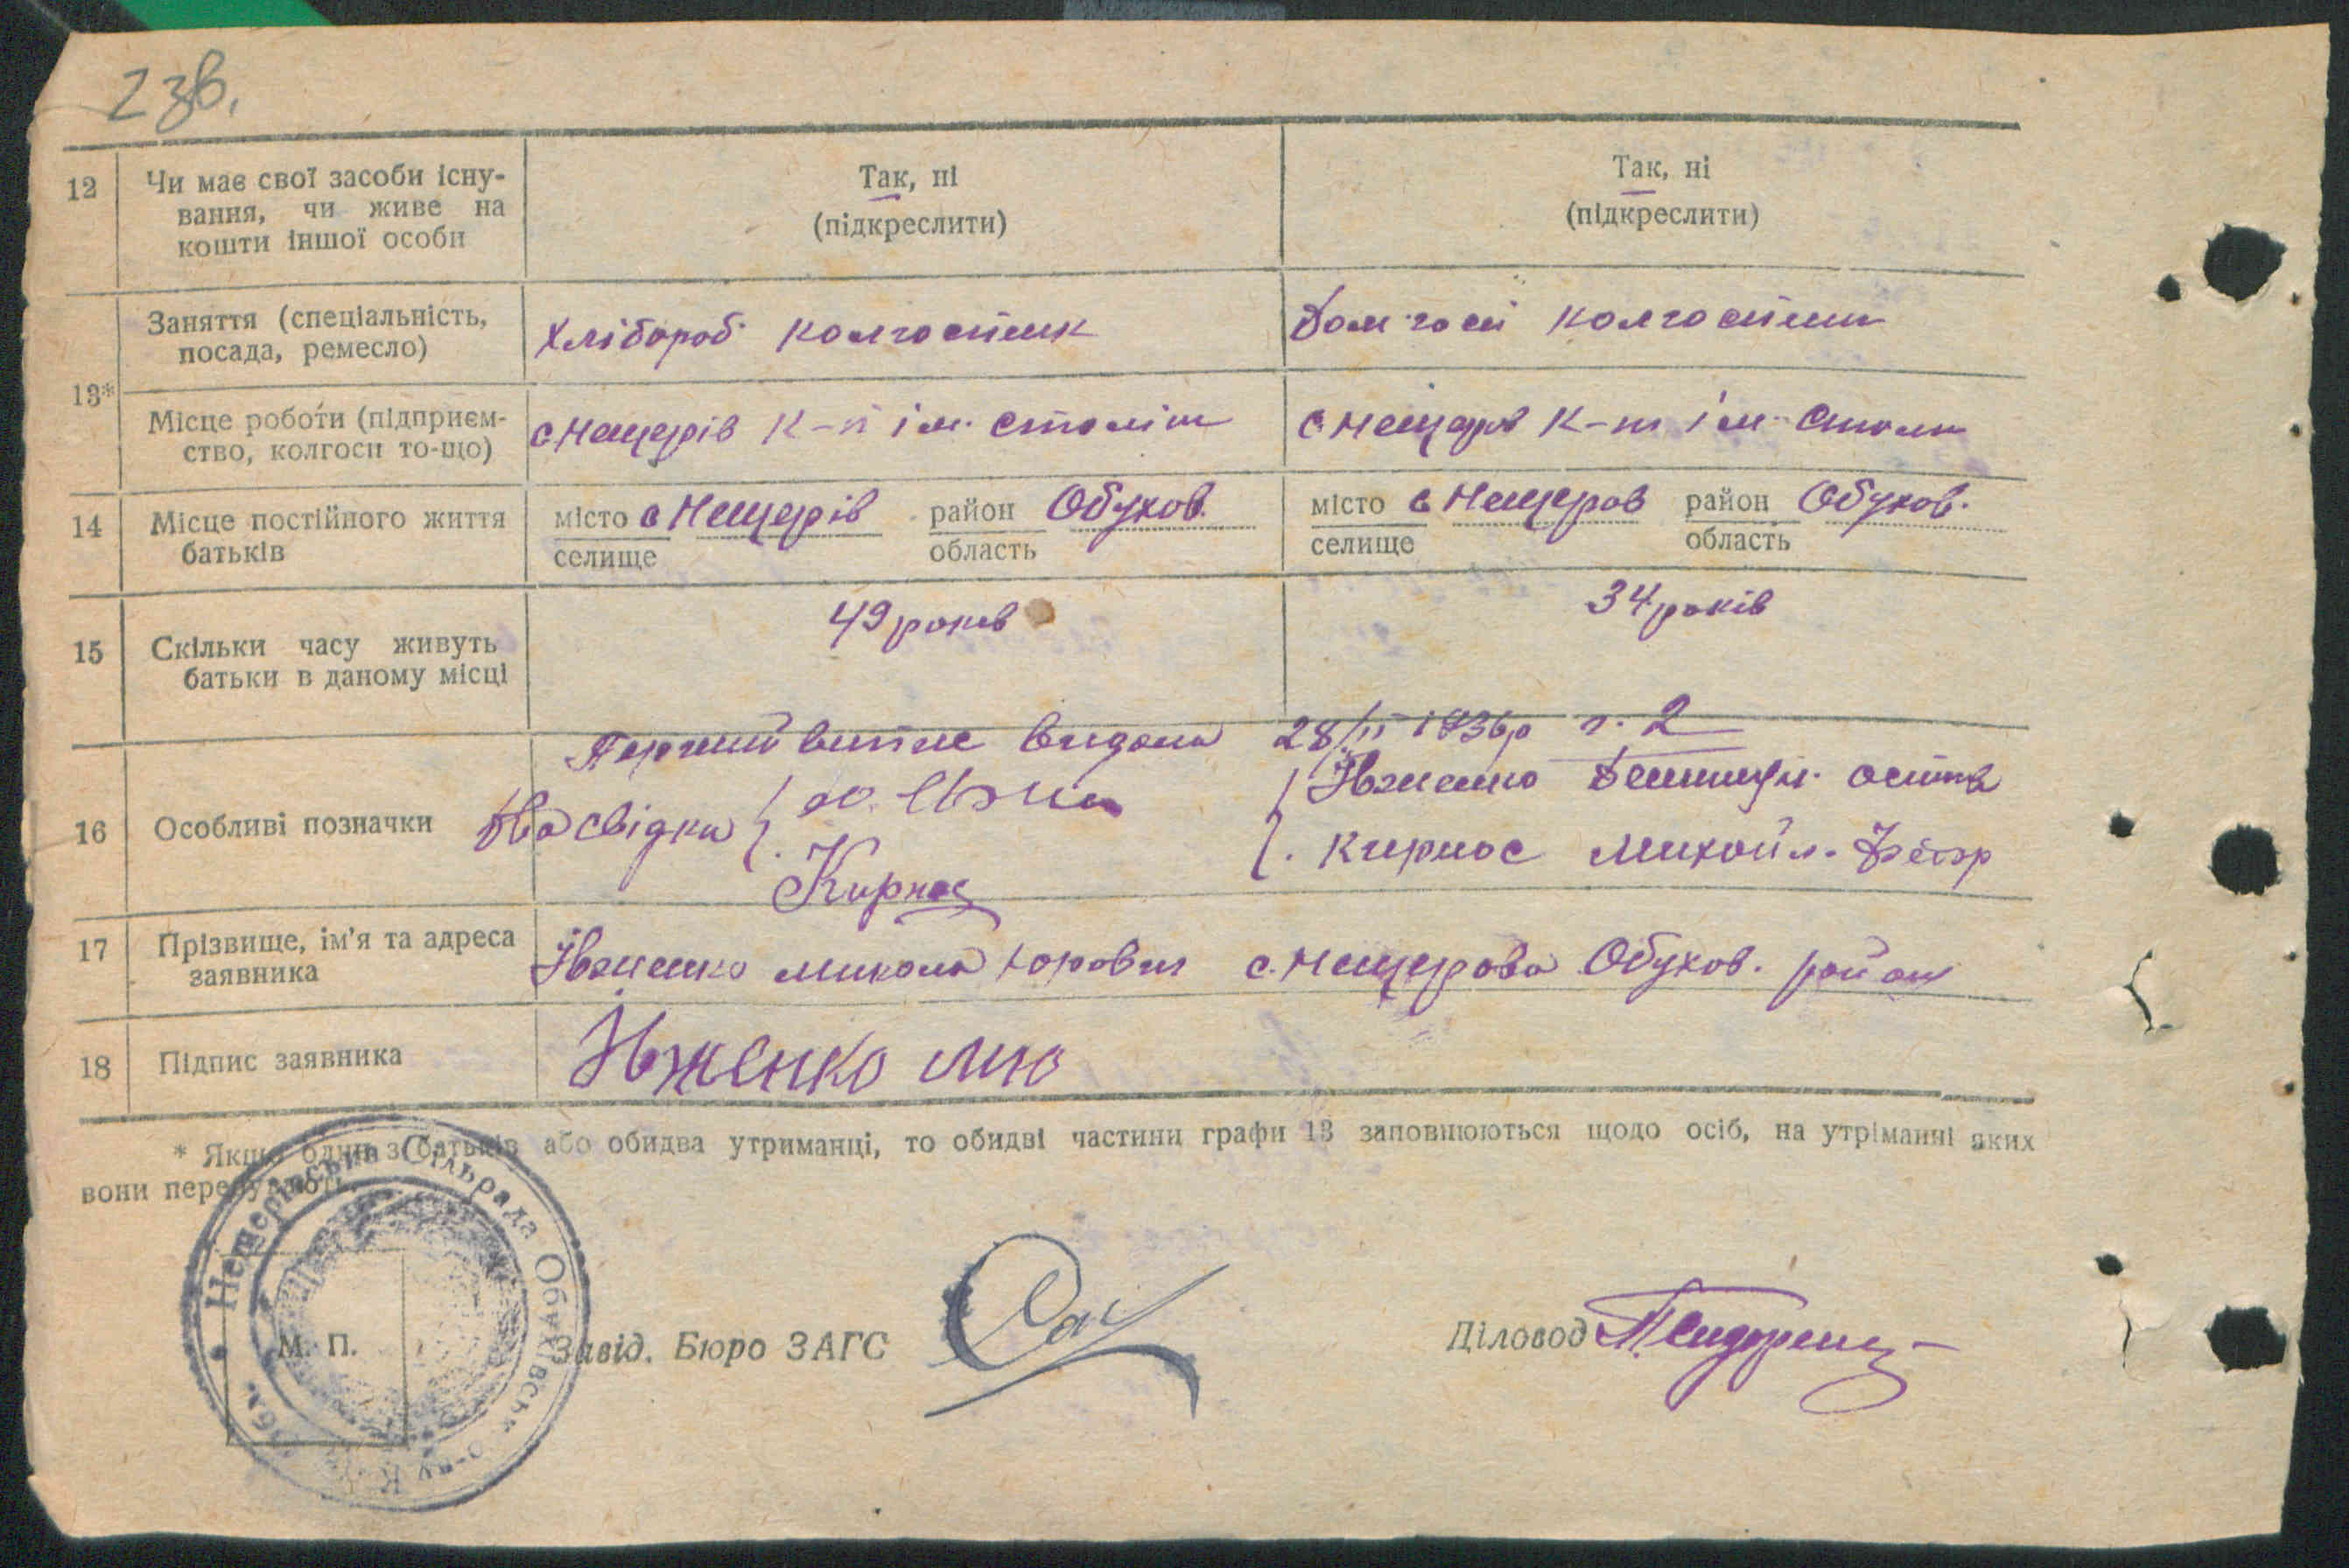 2 зв.
12 Чи має свої засоби існу-
вання, чи живе на
кошти іншої особи
Так, ні
(підкреслити)
Так, ні
(підкреслити)
13*
Заняття (спеціальність,
посада, ремесло)
Хлібороб колгоспник
Дом госп колгоспни
Місце роботи (підприєм-
ство, колгосп то-що)
с Нещерів к-п ім. Сталін
с Нещеров к-п ім. Сталін
14 Місце постійного життя
батьків
місто с Нещерів район Обухов.
селище область
місто с Нещеров район Обухов.
селище область
15 Скільки часу живуть
батьки в даному місці
49 років
34 років
16 Особливі позначки
Перший витяг видано 28/II 1936р г. 2
Два свідки
Івженко остап
Кирнос Михайл. Федор
Кирнос
17 Прізвище, ім'я та адреса
заявника
Івженко Микола Юрович с. Нещерова Обухов. район
18 Підпис заявника
Івженко мию
* Якщо один з батьків або обидва утриманці, то обидві частини графи 13 заповнюються щодо осіб, на утріманні яких
вони перебувають.
Нещерівська Сільрада Обухівськ. р-ну К обл.
М. П.
Завід. Бюро ЗАГС
Діловод